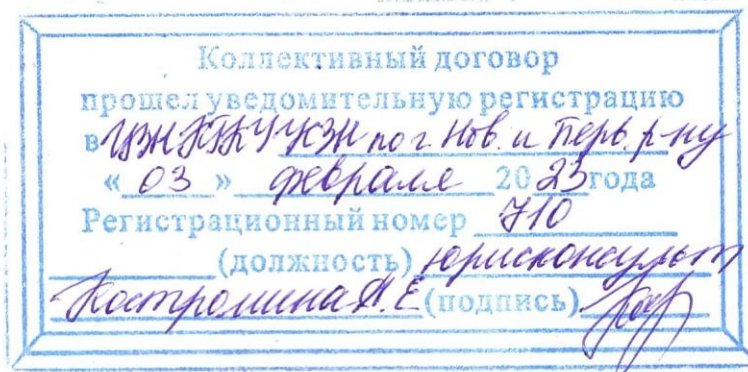 Коллективный договор
прошел уведомительную регистрацию
в ЦЗН ГКУ УКЗН по г. Нов. и Перв. р-ну
« 03 » февраля 2023 года
Регистрационный номер 710
(должность) юрисконсульт
Костромина Е (подпись)